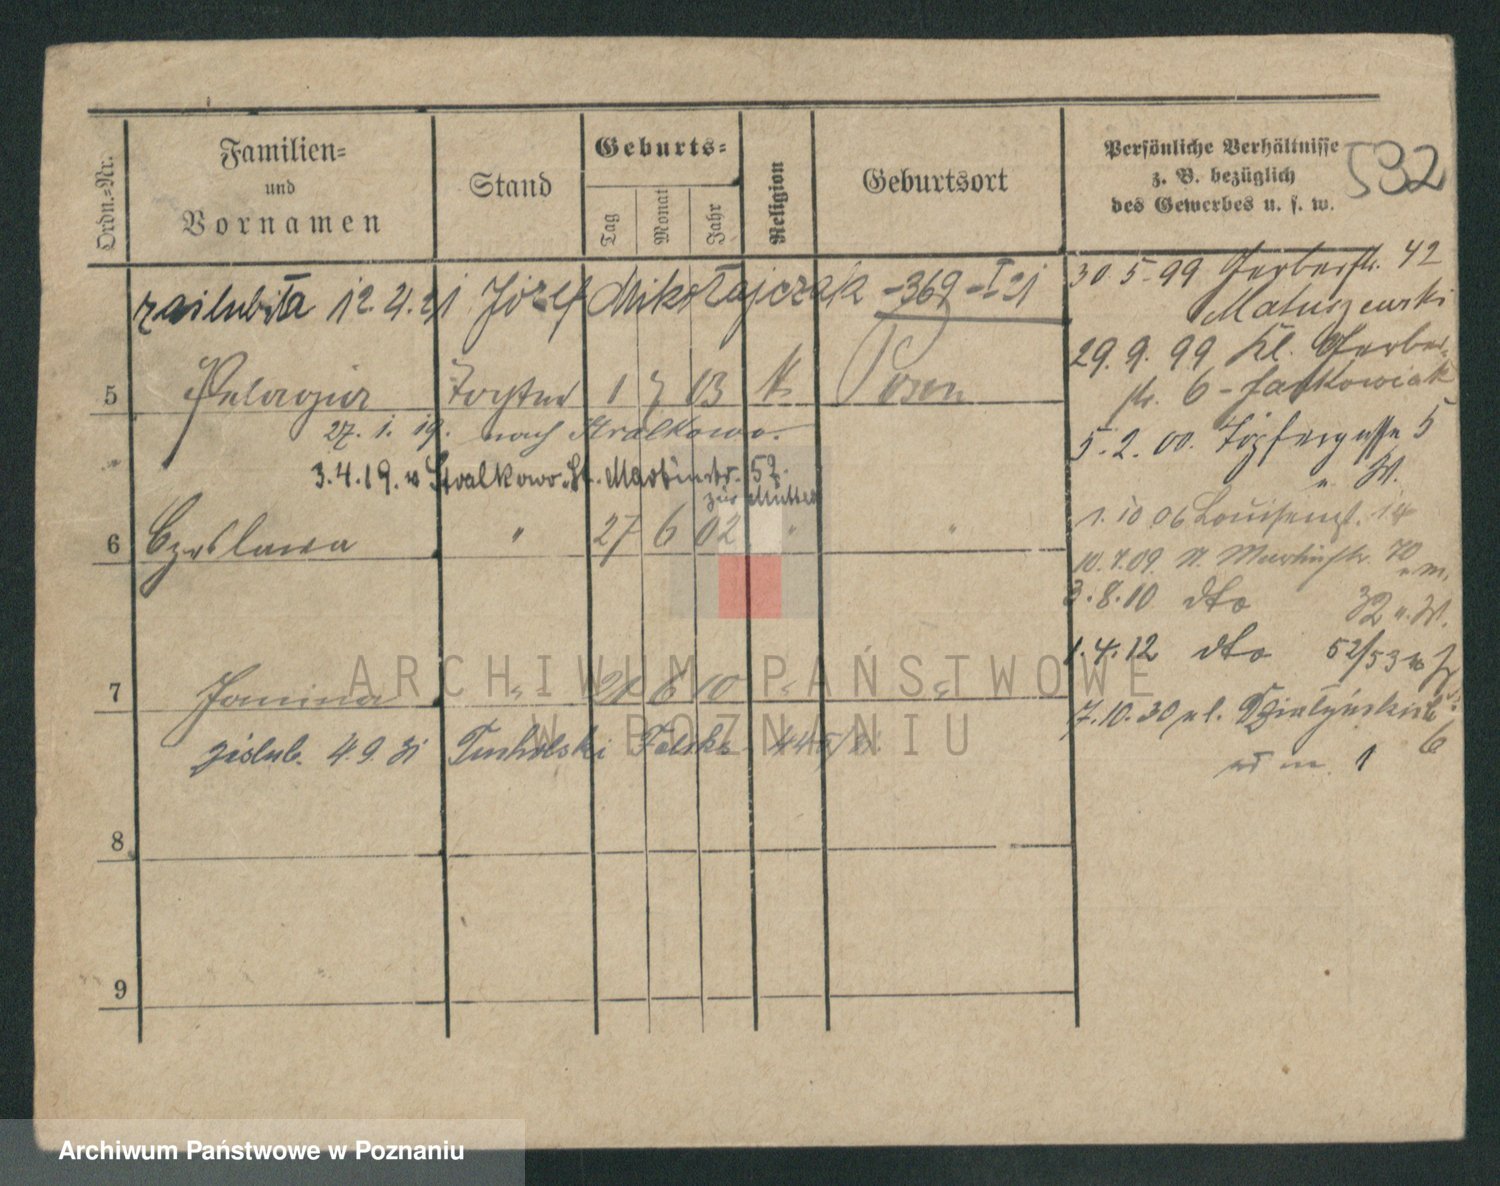 Ordn.=Nr.
Familien=
und
Vornamen
Stand
Geburts=
Tag
Monat
Jahr
Religion
Geburtsort
Persönliche Verhältnisse
z. B. bezüglich
des Gewerbes u. s. w.
532
zaślubiła 12.4.21 Józef Mikołajczak -369-I 21
5 Pelagia Tochter 1 7 03 K. Posen
27. 1. 19. nach Stralkowo.
3.4.19. v Stralkowo. St. Martinstr. 57.
zur Mutter
6 Czeslawa " 27 6 02 " "
7 Janina " 21 6 10 " "
zaślub. 4.9.31 Tucholski Feliks
8
9
30 5 99 Gerberstr. 42
Matuszewski
29. 9. 99 Kl. Gerber-
str. 6 - Jankowiak
5. 2. 00. Töpfergasse 5
" W.
1. 10 06 Louisenst. 14
10. 7. 09. St. Martinstr. 70
3. 8. 10 dto 32 " W.
1. 4. 12 dto 52/53
7. 10. 30 pl. Działyńskich
6
1
ARCHIWUM PAŃSTWOWE
W POZNANIU
Archiwum Państwowe w Poznaniu